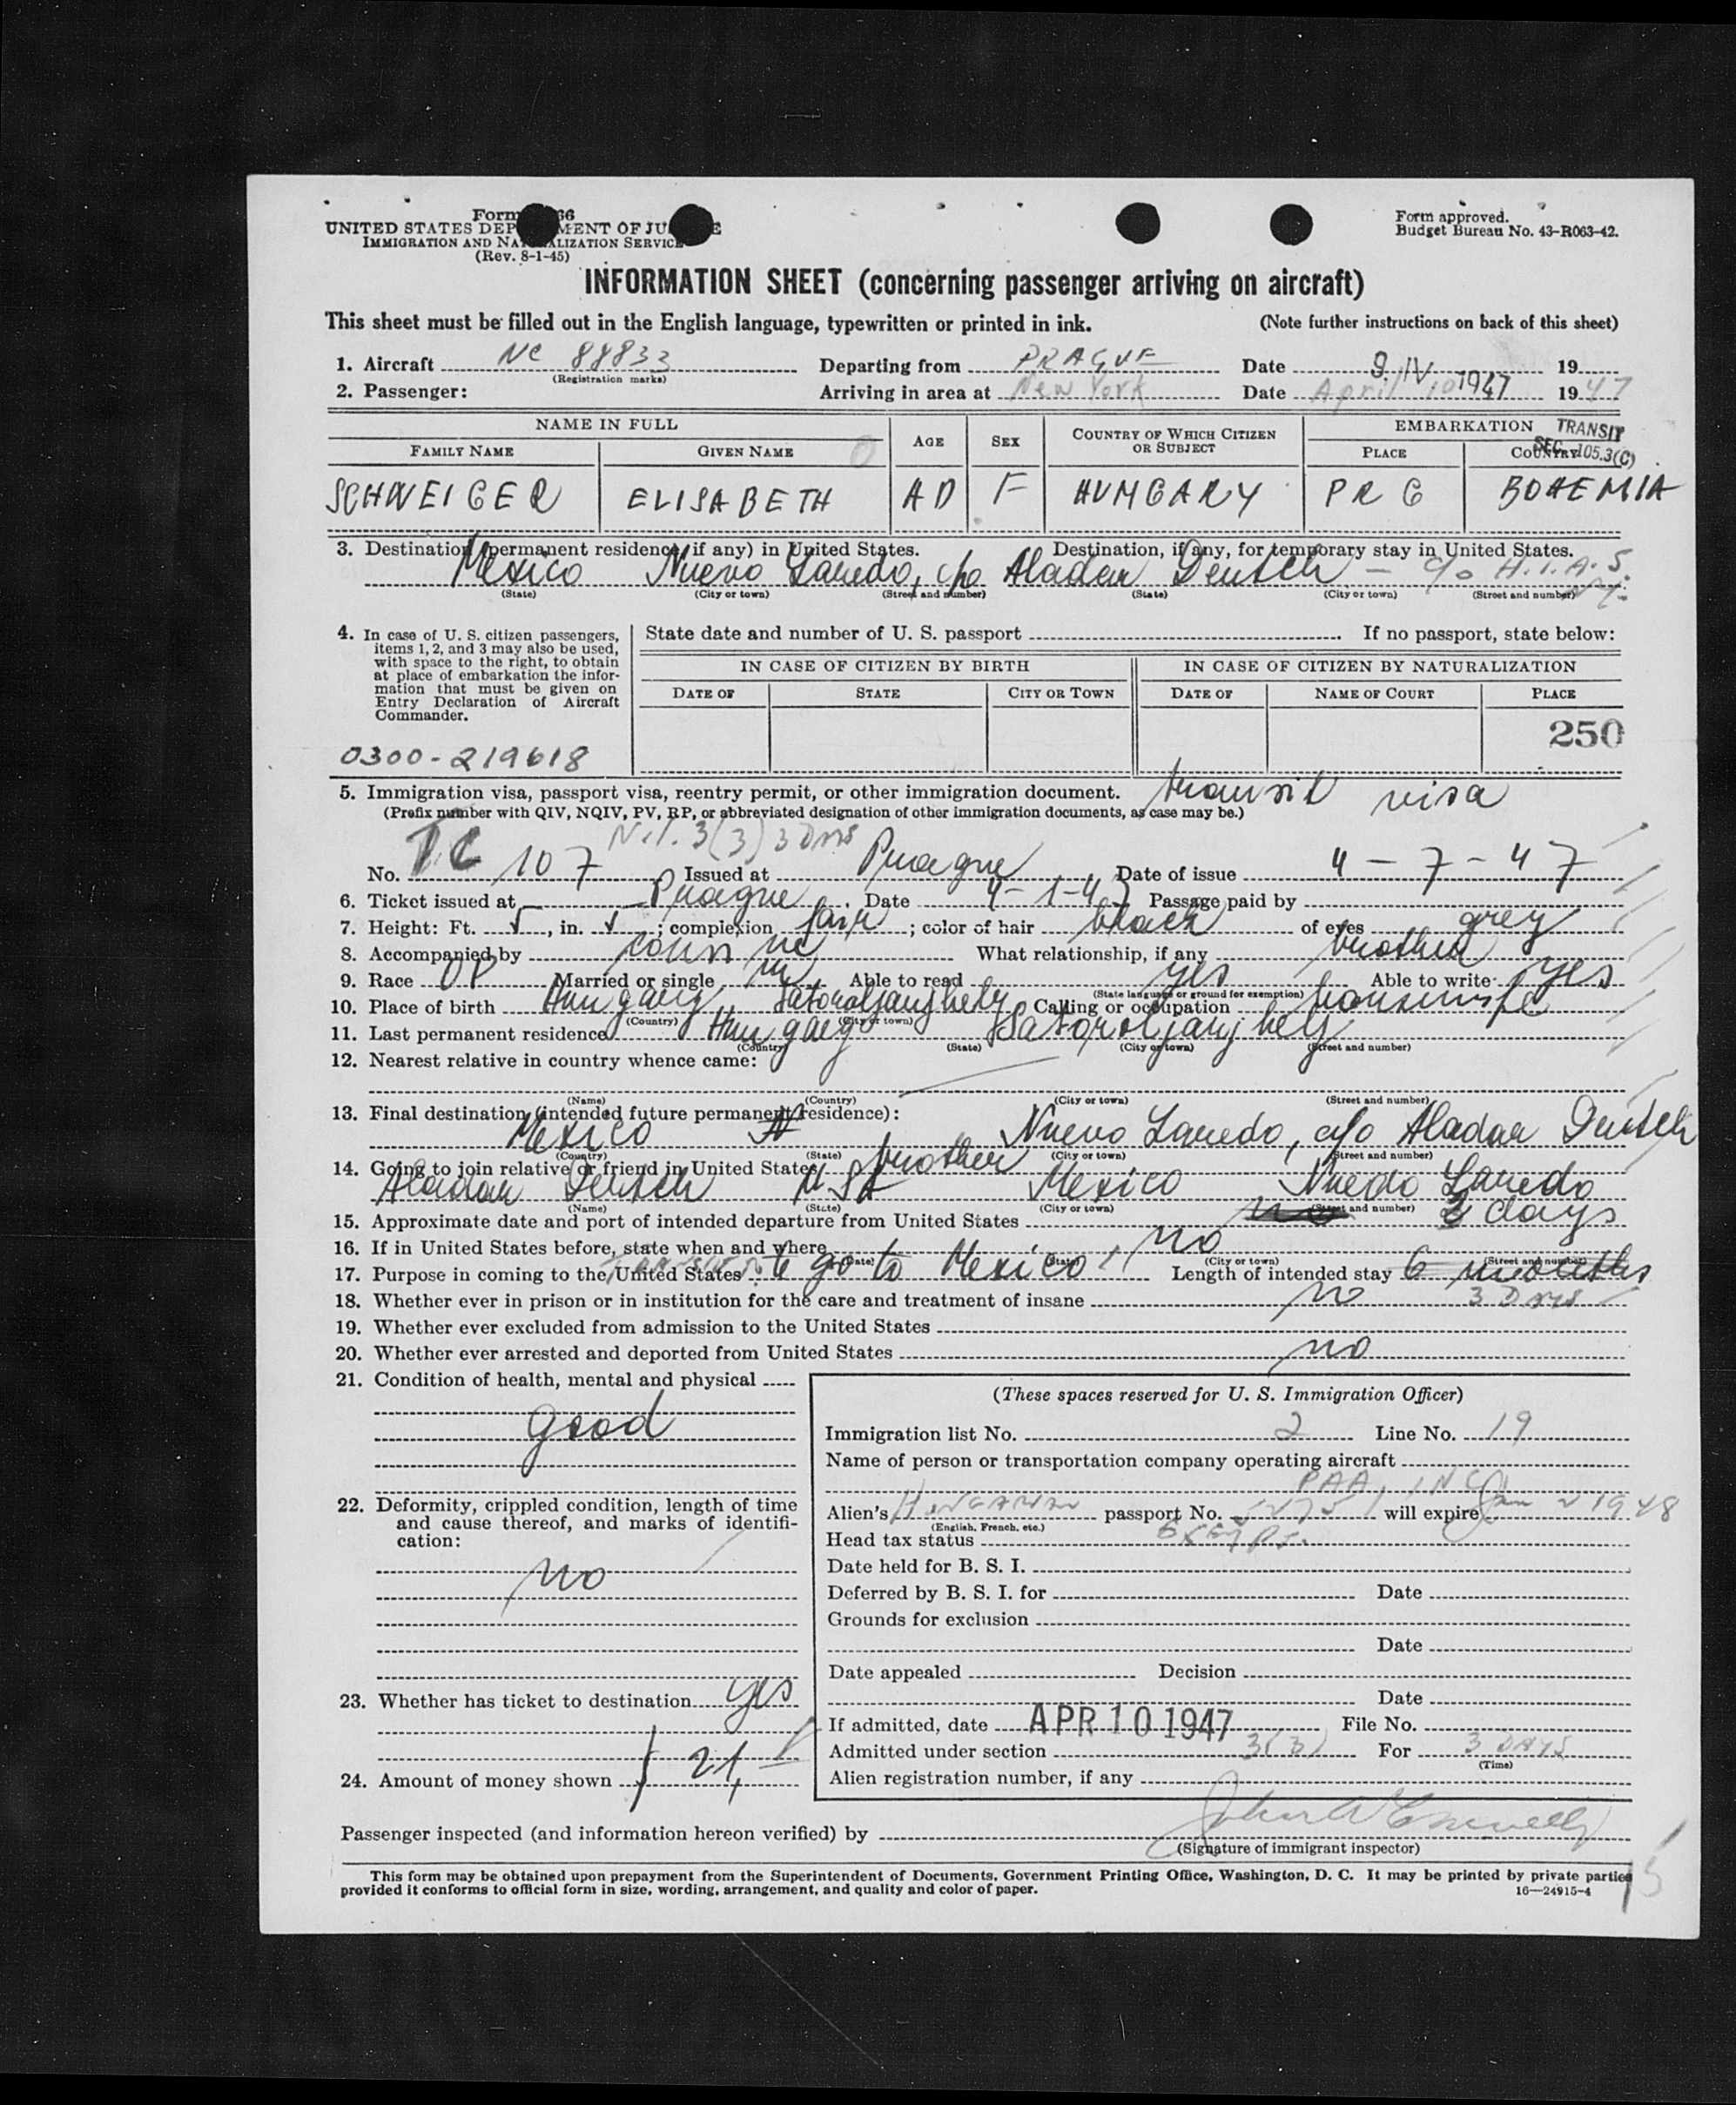 Form 66
UNITED STATES DEP MENT OF JU E
IMMIGRATION AND NA ALIZATION SERVICE
(Rev. 8-1-45)
Form approved.
Budget Bureau No. 43-R063-42.
INFORMATION SHEET (concerning passenger arriving on aircraft)
This sheet must be filled out in the English language, typewritten or printed in ink. (Note further instructions on back of this sheet)
1. Aircraft NC 88833 Departing from PRAGUE Date 9. IV 1947 19
(Registration marks)
2. Passenger: Arriving in area at New York Date April 10 1947
NAME IN FULL AGE SEX COUNTRY OF WHICH CITIZEN OR SUBJECT EMBARKATION TRANSIT
FAMILY NAME GIVEN NAME PLACE COUNTRY SEC. 105.3(C)
SCHWEIGER ELISABETH AD F HUNGARY PRG BOHEMIA
3. Destination (permanent residence, if any) in United States. Destination, if any, for temporary stay in United States.
Mexico Nuevo Laredo, c/o Aladar Deutsch - c/o H.I.A.S. N.Y.
(State) (City or town) (Street and number) (State) (City or town) (Street and number)
4. In case of U. S. citizen passengers, items 1, 2, and 3 may also be used, with space to the right, to obtain at place of embarkation the information that must be given on Entry Declaration of Aircraft Commander.
State date and number of U. S. passport If no passport, state below:
IN CASE OF CITIZEN BY BIRTH IN CASE OF CITIZEN BY NATURALIZATION
DATE OF STATE CITY OR TOWN DATE OF NAME OF COURT PLACE
250
0300-219618
5. Immigration visa, passport visa, reentry permit, or other immigration document. transit visa
(Prefix number with QIV, NQIV, PV, RP, or abbreviated designation of other immigration documents, as case may be.)
3(3) 3 DAYS
No. TC 107 Issued at Prague Date of issue 4-7-47
6. Ticket issued at Prague Date 4-1-47 Passage paid by
7. Height: Ft. 5, in. 1; complexion fair; color of hair black of eyes grey
8. Accompanied by What relationship, if any brother
9. Race Married or single m Able to read yes Able to write yes
(State language or ground for exemption)
10. Place of birth Hungary Satoraljaujhely Calling or occupation housewife
(Country) (City or town)
11. Last permanent residence Hungary Satoraljaujhely
(Country) (State) (City or town) (Street and number)
12. Nearest relative in country whence came:
(Name) (Country) (City or town) (Street and number)
13. Final destination (intended future permanent residence):
Mexico Nuevo Laredo, c/o Aladar Deutsch
(Country) (State) (City or town) (Street and number)
14. Going to join relative or friend in United States brother
Aladar Deutsch Mexico Nuedo Laredo
(Name) (State) (City or town) (Street and number)
15. Approximate date and port of intended departure from United States 3 days
16. If in United States before, state when and where no
(Date) (State) (City or town) (Street and number)
17. Purpose in coming to the United States to go to Mexico Length of intended stay 6 months
18. Whether ever in prison or in institution for the care and treatment of insane no 3 DAYS
19. Whether ever excluded from admission to the United States
20. Whether ever arrested and deported from United States no
21. Condition of health, mental and physical
good
22. Deformity, crippled condition, length of time and cause thereof, and marks of identification:
no
23. Whether has ticket to destination yes
24. Amount of money shown 21,-
(These spaces reserved for U. S. Immigration Officer)
Immigration list No. 2 Line No. 19
Name of person or transportation company operating aircraft
PAA, INC
Alien's Hungarian passport No. will expire Jan 2 1948
(English, French, etc.)
Head tax status EXEMPT.
Date held for B. S. I.
Deferred by B. S. I. for Date
Grounds for exclusion
Date
Date appealed Decision
Date
If admitted, date APR 10 1947 File No.
Admitted under section 3(3) For 3 DAYS
(Time)
Alien registration number, if any
Passenger inspected (and information hereon verified) by
(Signature of immigrant inspector)
This form may be obtained upon prepayment from the Superintendent of Documents, Government Printing Office, Washington, D. C. It may be printed by private parties
provided it conforms to official form in size, wording, arrangement, and quality and color of paper. 16—24915-4